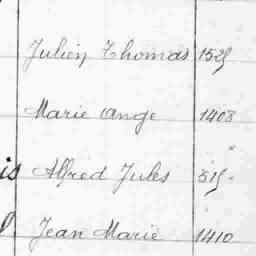 Julien Thomas 1529
Marie Ange 1408
is Alfred Jules 519
Jean Marie 1410